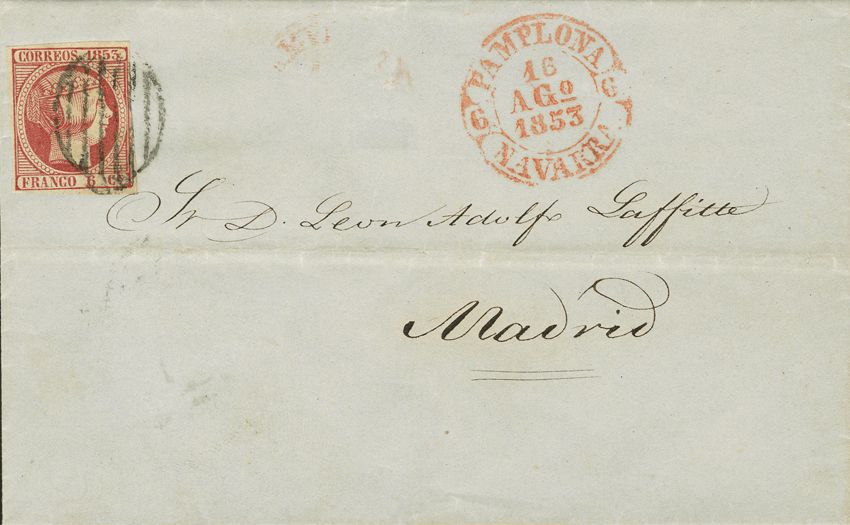 CORREOS 1853
FRANCO 6 Cs
PAMPLONA
16
AGo
1853
6 6
NAVARRA
Sr D. Leon Adolfo Laffitte
Madrid